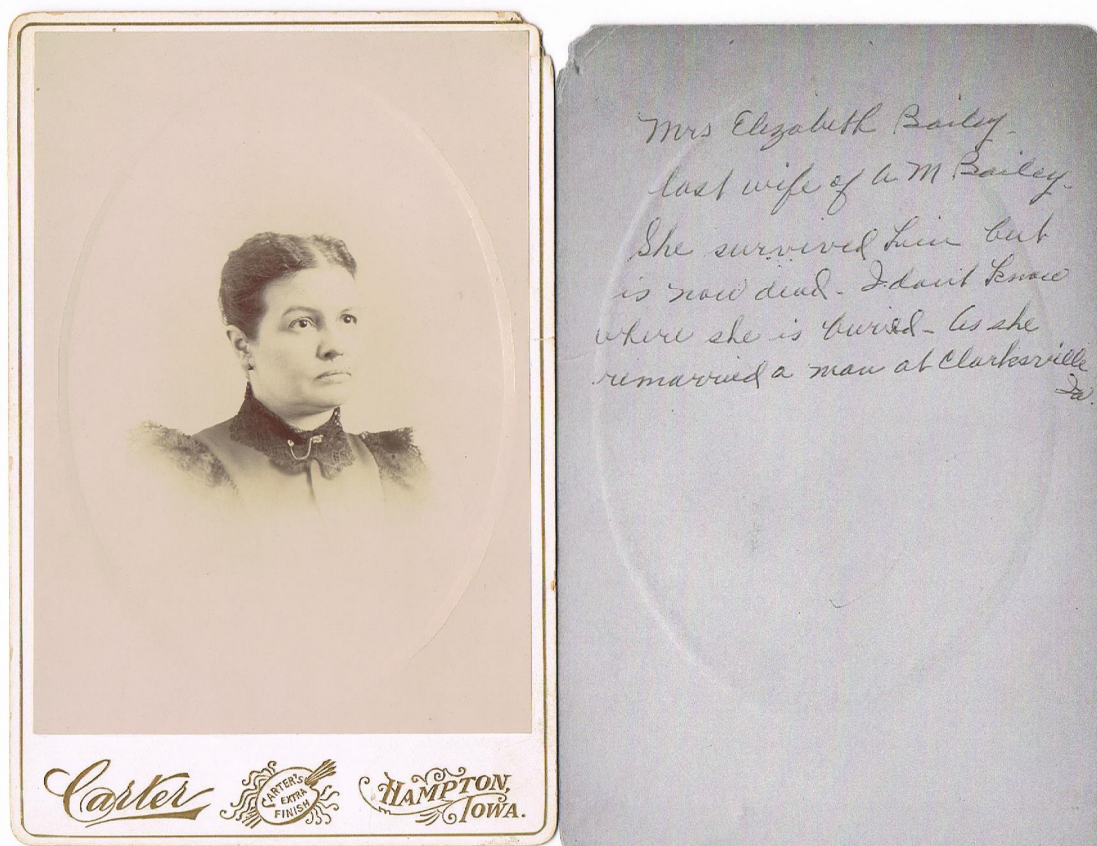 Carter
CARTER'S
EXTRA
FINISH
HAMPTON,
IOWA.
Mrs Elizabeth Bailey -
last wife of A M Bailey -
She survived him but
is now dead - I don't know
where she is buried - As she
remarried a man at Clarksville
Ia.